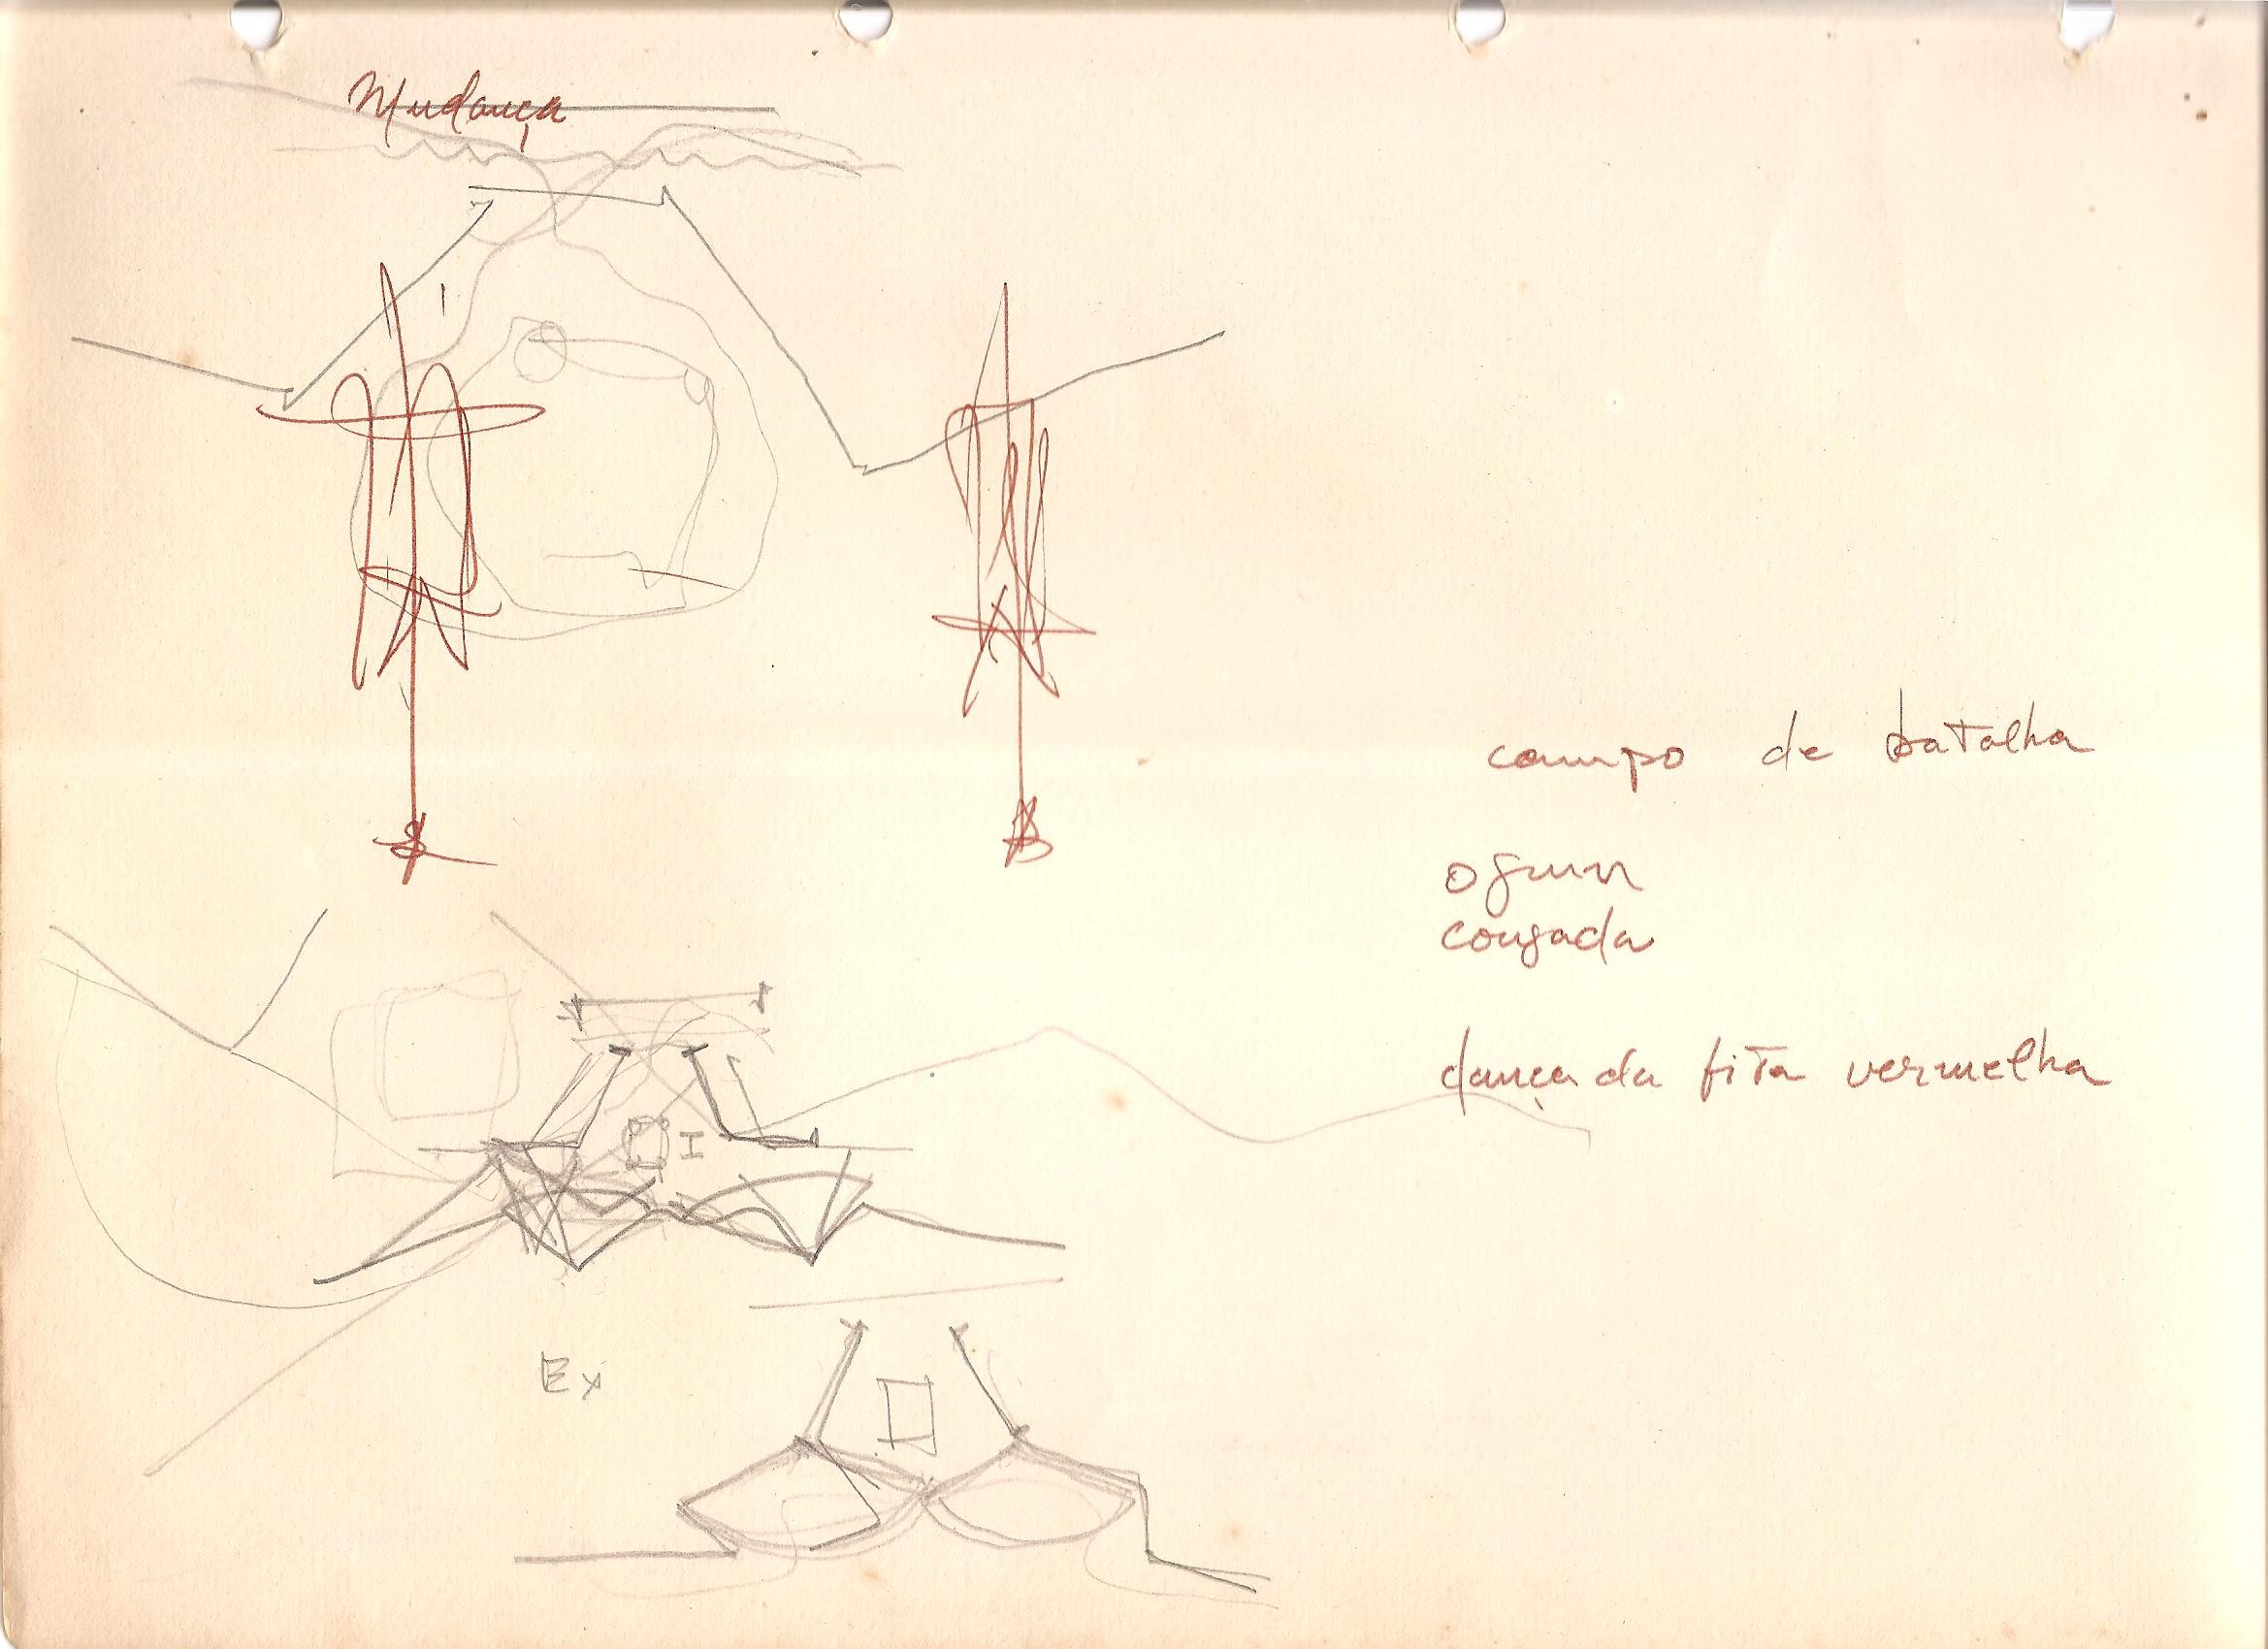 Mudança
campo de batalha
ogun
congada
dança da fita vermelha
I
Ex